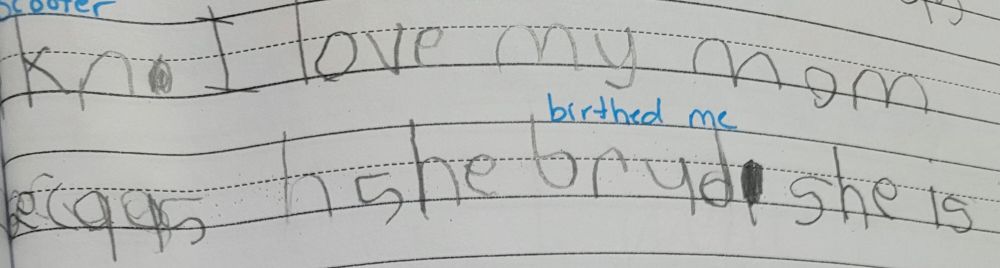 scooter
kno I love my mom
birthed me
h she bryd she is